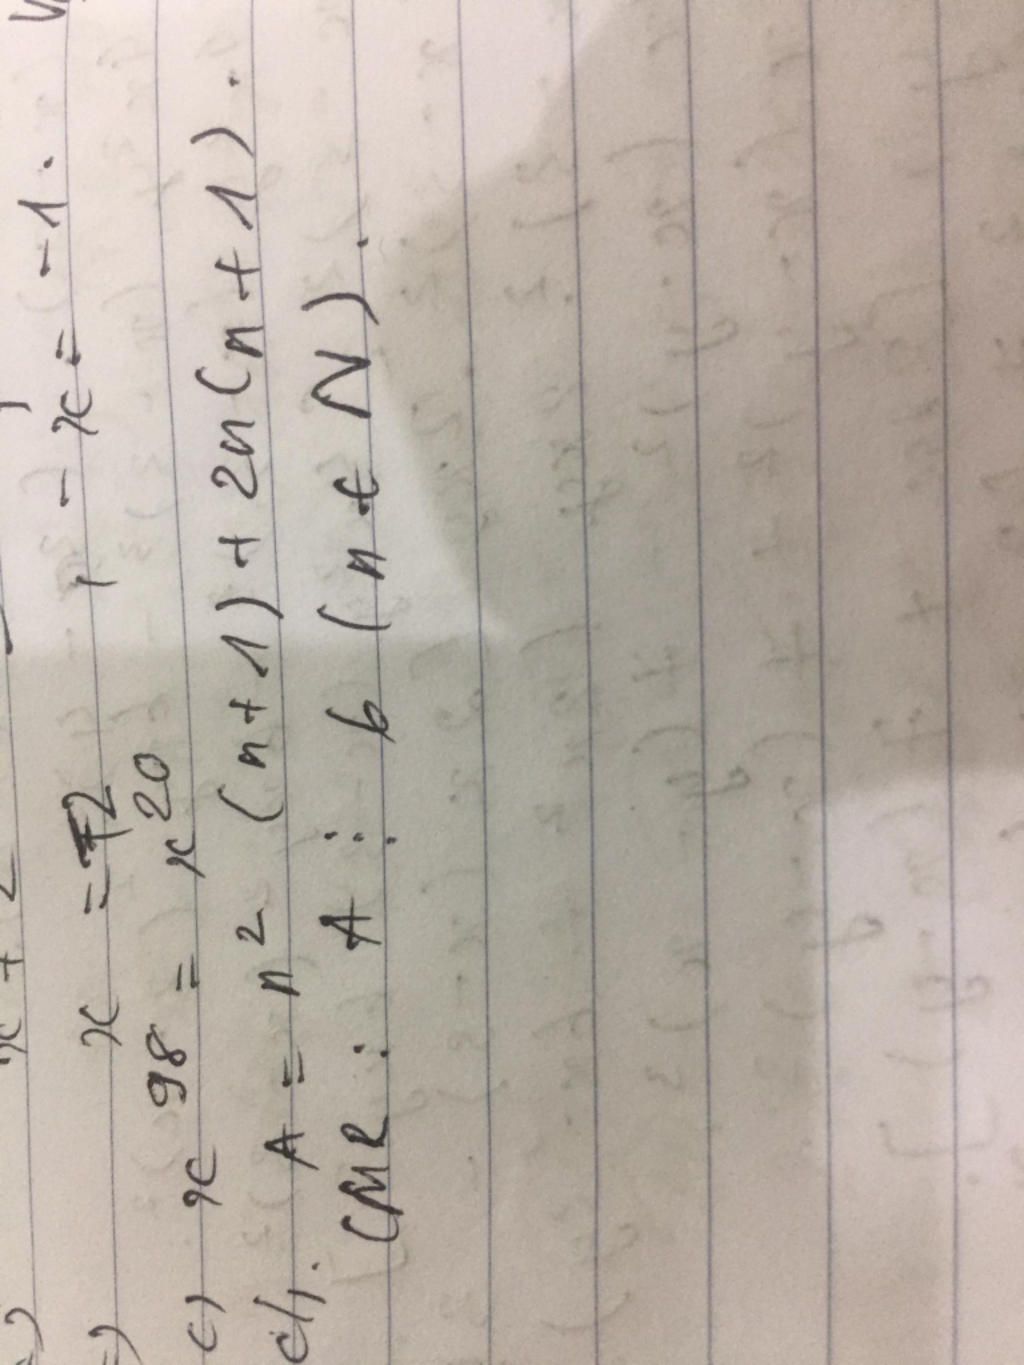 x + 2
x = 72 , - x = -1.
c) x^98 = x^20
d). A = n^2 (n+1) + 2n(n+1).
CMR: A ⋮ 6 (n ∈ N).